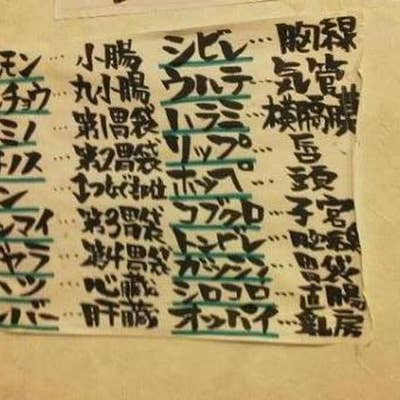 モン…小腸
チョウ…丸小腸
ミノ…第1胃袋
チノス…第2胃袋
ン…
ンマイ…第3胃袋
ギヤラ…第4胃袋
ハツ…心臓
バー…肝臓
シビレ…胸線
ウルテ…気管
ハラミ…横隔膜
リップ…唇
ホッペ…頭
コブクロ…子宮
トンビレ…
ガツシン…胃袋
シロコロ…直腸
オッパイ…乳房